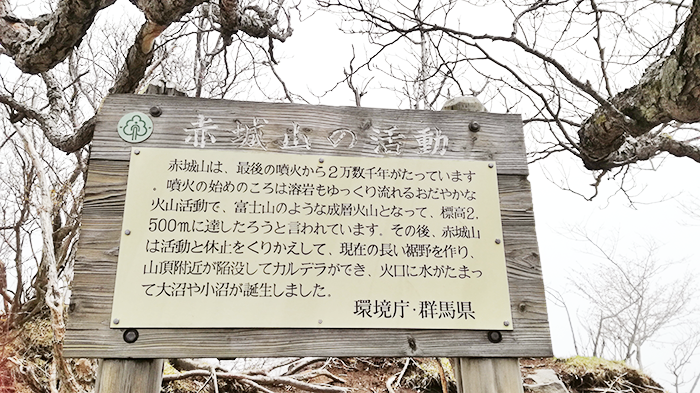 赤城山の活動
赤城山は、最後の噴火から2万数千年がたっています
。噴火の始めのころは溶岩もゆっくり流れるおだやかな
火山活動で、富士山のような成層火山となって、標高2,
500mに達したろうと言われています。その後、赤城山
は活動と休止をくりかえして、現在の長い裾野を作り、
山頂附近が陥没してカルデラができ、火口に水がたまっ
て大沼や小沼が誕生しました。
環境庁・群馬県